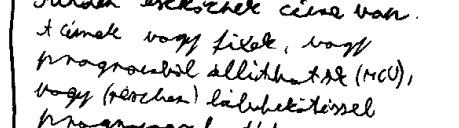 minden eszköznek címe van.
A címek vagy fixek, vagy
programból állíthatók (MCU),
vagy (részben) lábbekötéssel